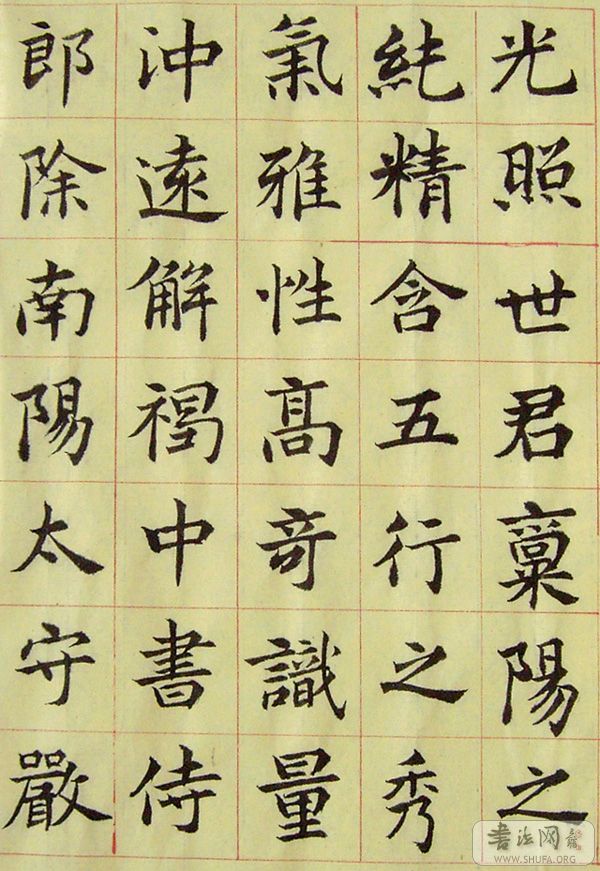 光照世君稟陽之
純精含五行之秀
氣雅性高奇識量
沖遠解褐中書侍
郎除南陽太守嚴
書法网
WWW.SHUFA.ORG